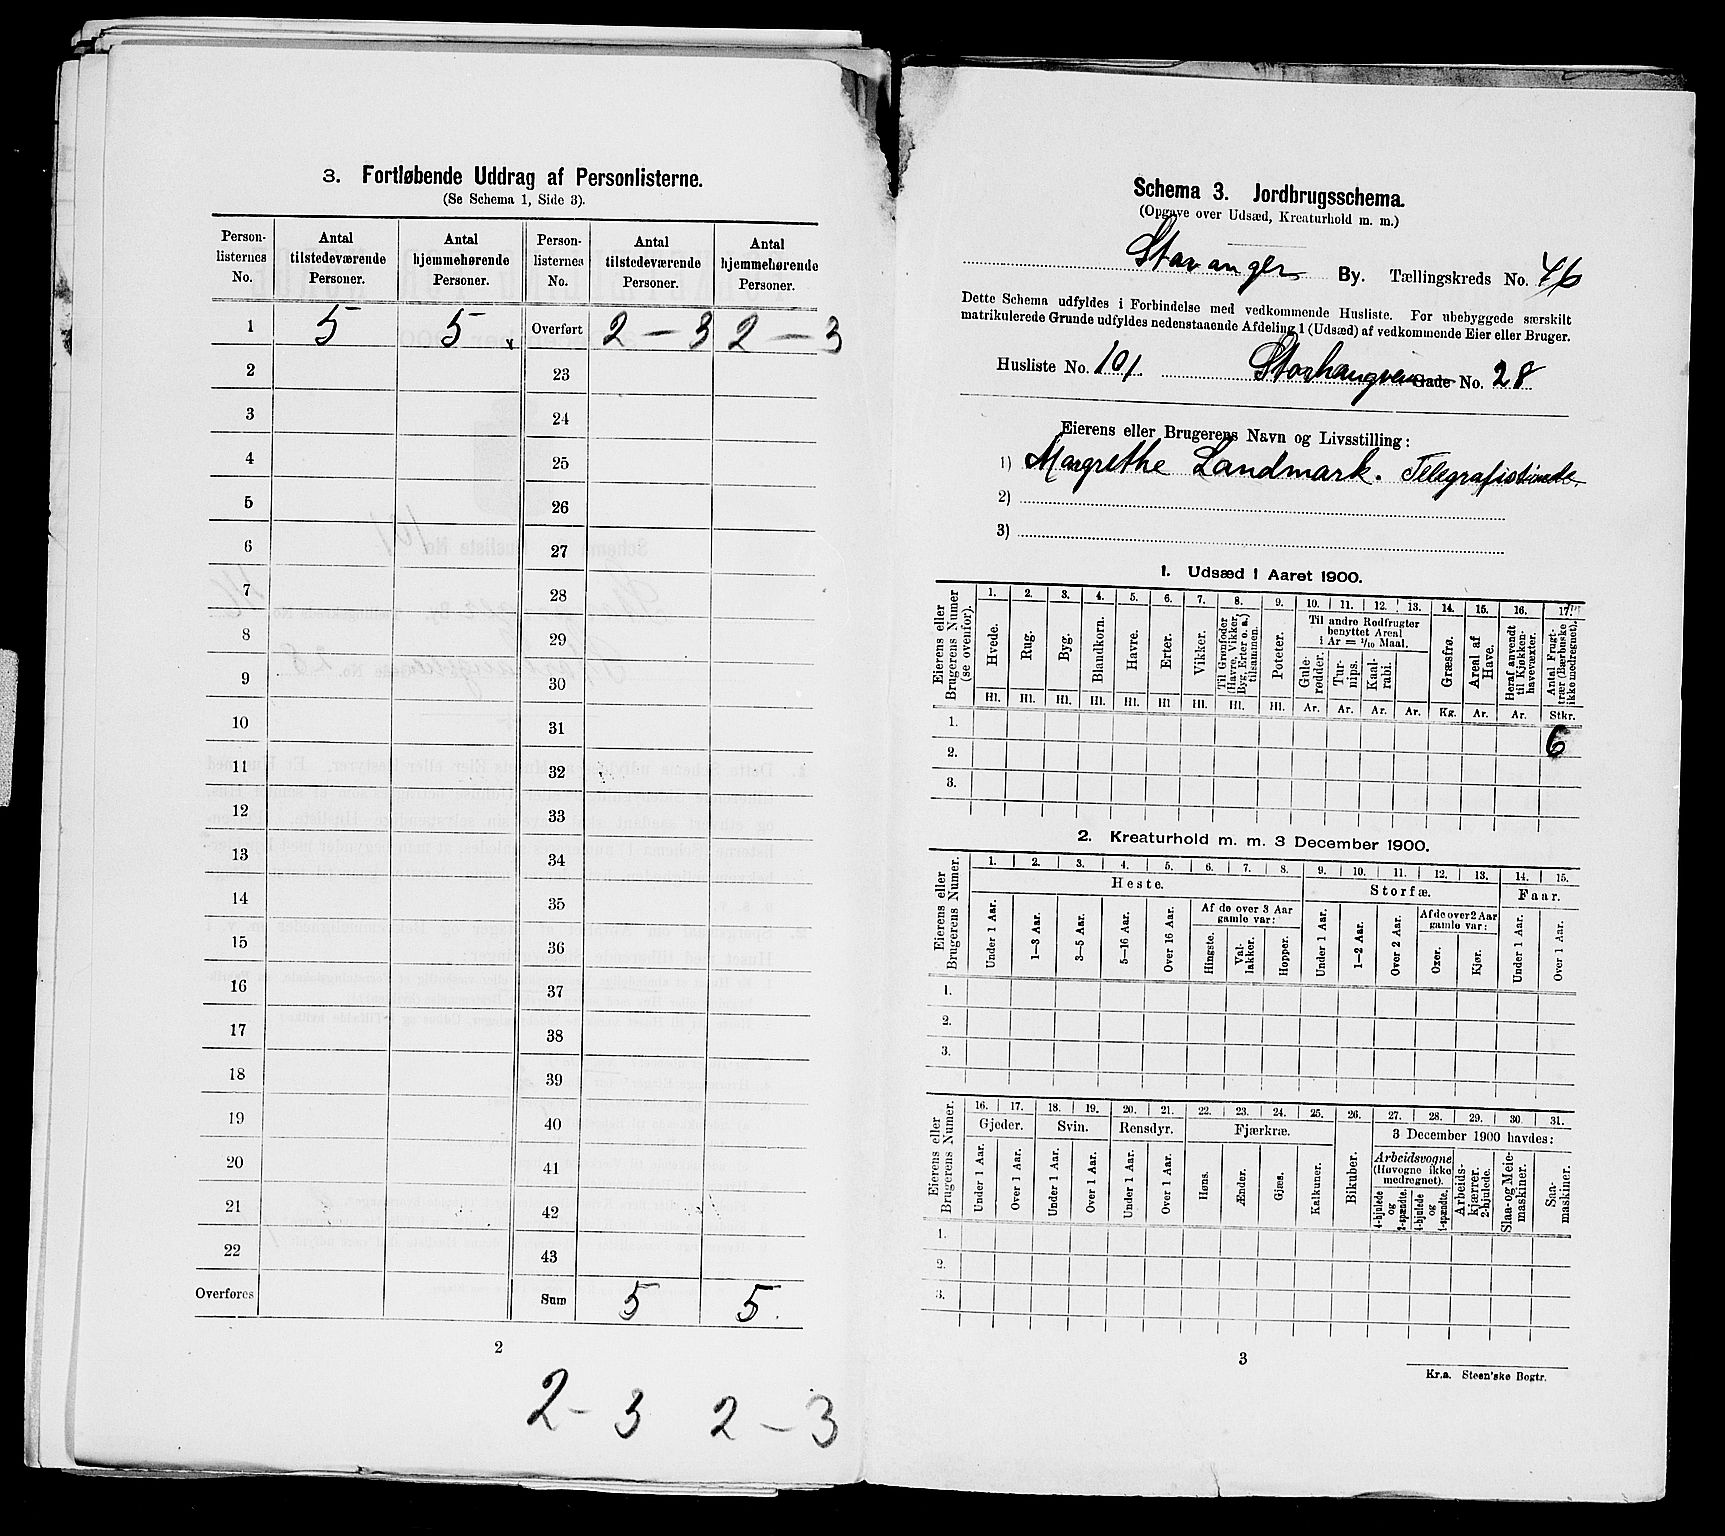 3. Fortløbende Uddrag af Personlisterne.
(Se Schema 1, Side 3).
Person-listernes No. | Antal tilstedeværende Personer. | Antal hjemmehørende Personer. | Person-listernes No. | Antal tilstedeværende Personer. | Antal hjemmehørende Personer.
1 5 5 Overført 2 – 3 2 – 3
2 23
3 24
4 25
5 26
6 27
7 28
8 29
9 30
10 31
11 32
12 33
13 34
14 35
15 36
16 37
17 38
18 39
19 40
20 41
21 42
22 43
Overføres Sum 5 5.
2
2 – 3 2 – 3
Schema 3. Jordbrugsschema.
(Opgave over Udsæd, Kreaturhold m. m.)
Stavanger By. Tællingskreds No. 46
Dette Schema udfyldes i Forbindelse med vedkommende Husliste. For ubebyggede særskilt
matrikulerede Grunde udfyldes nedenstaaende Afdeling 1 (Udsæd) af vedkommende Eier eller Bruger.
Husliste No. 101. Storhaugvei Gade No. 28
Eierens eller Brugerens Navn og Livsstilling:
1) Margrethe Landmark. Telegrafistinde.
2)
3)
1. Udsæd i Aaret 1900.
Eierens eller Brugerens Numer (se ovenfor).
1. 2. 3. 4. 5. 6. 7. 8. 9. 10. 11. 12. 13. 14. 15. 16. 17.
Hvede. Rug. Byg. Blandkorn. Havre. Erter. Vikker. Til Grønfoder (Havre, Vikker, Byg, Erter o. a.) tilsammen. Poteter.
Til andre Rodfrugter benyttet Areal i Ar = 1/10 Maal.
Gule-rødder. Tur-nips. Kaal-rabi. Græsfrø. Areal af Have. Heraf anvendt til Kjøkken-havevæxter. Antal Frugt-trær (Bærbuske ikke medregnet).
Hl. Hl. Hl. Hl. Hl. Hl. Hl. Hl. Hl. Ar. Ar. Ar. Ar. Kg. Ar. Ar. Stkr.
1. 6
2.
3.
2. Kreaturhold m. m. 3 December 1900.
Eierens eller Brugerens Numer.
1. 2. 3. 4. 5. 6. 7. 8. 9. 10. 11. 12. 13. 14. 15.
Heste. Storfæ. Faar.
Af de over 3 Aar gamle var: Af de over 2 Aar gamle var:
Under 1 Aar. 1–3 Aar. 3–5 Aar. 5–16 Aar. Over 16 Aar. Hingste. Val-lakker. Hopper. Under 1 Aar. 1–2 Aar. Over 2 Aar. Oxer. Kjør. Under 1 Aar. Over 1 Aar.
1.
2.
3.
Eierens eller Brugerens Numer.
16. 17. 18. 19. 20. 21. 22. 23. 24. 25. 26. 27. 28. 29. 30. 31.
Gjeder. Svin. Rensdyr. Fjærkræ. Bikuber. 3 December 1900 havdes:
Arbeidsvogne (Høvogne ikke medregnet).
Under 1 Aar. Over 1 Aar. Under 1 Aar. Over 1 Aar. Under 1 Aar. Over 1 Aar. Høns. Ænder. Gjæs. Kalkuner. 4-hjulede og 2-spændte. 4-hjulede og 1-spændte. Arbeids-kjærrer, 2-hjulede. Slaa- og Meie-maskiner. Saa-maskiner.
1.
2.
3.
3
Kr.a. Steen'ske Bogtr.